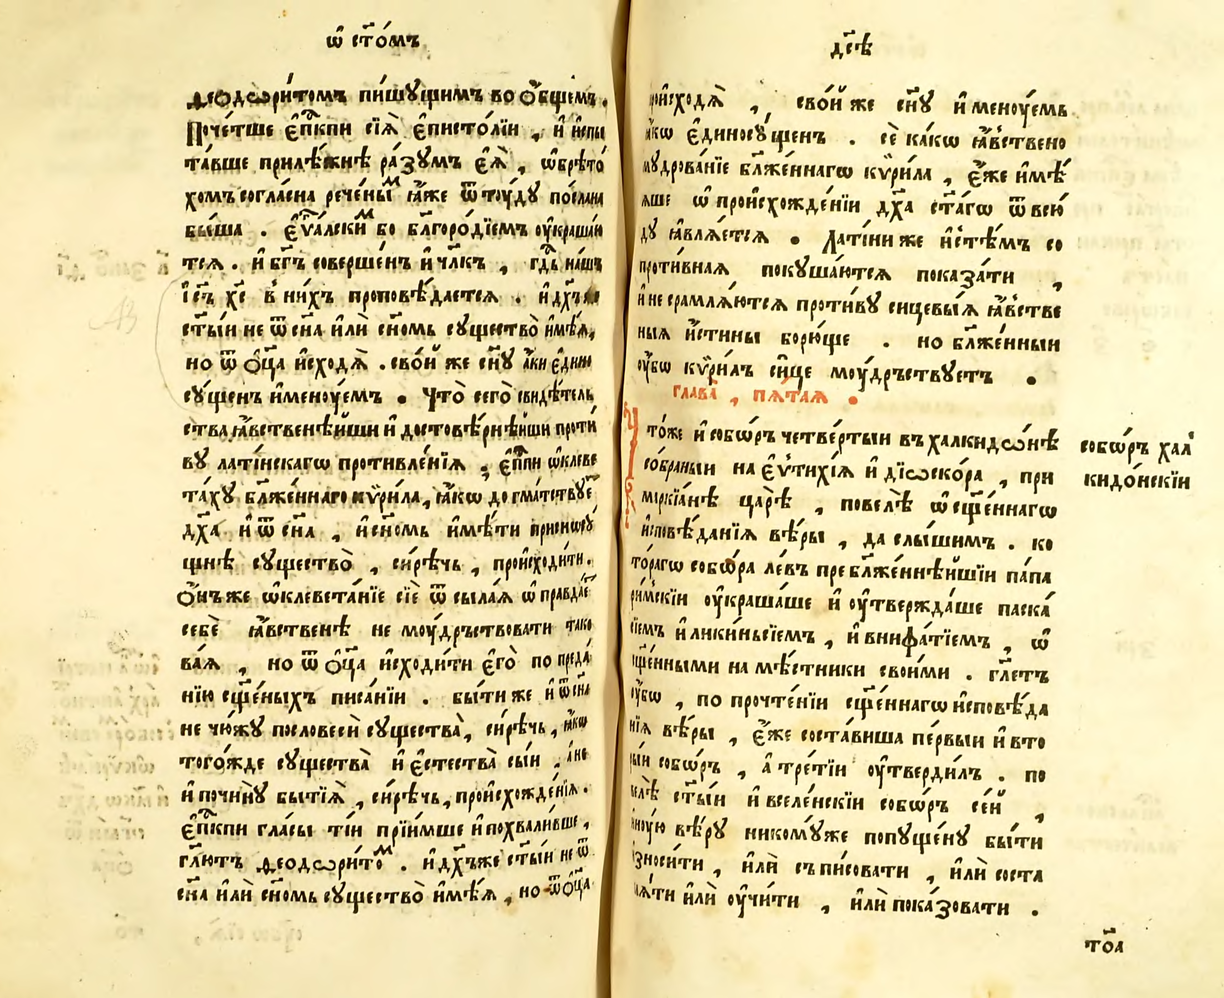 ѡ҆ ст҃о́мъ
ѳеодѡри́томъ пи́шꙋщимъ во о҆́бщемъ.
Поче́тше є҆пⷭ҇кпи сїѧ̀ є҆писто́лїи , и҆ и҆спы
та́вше прилѣ́жнѣ ра́зꙋмъ є҆ѧ̀ , ѡ҆брѣто́
хомъ согла́сна рече́ныⷨ ꙗ҆́же ѿтꙋ́дꙋ по́слана
бы́ша . є҆ѵⷢ҇а́лскиⷨ бо бл҃горо́дїемъ оу҆краша́ю
тсѧ . и҆ бг҃ъ соверше́нъ и҆ чл҃къ , гдⷭ҇ь на́шъ
і҆с҃ъ хс҃ в ни́хъ проповѣ́даетсѧ . и҆ дх҃ъже
ст҃ы́и не ѿ сн҃а и҆лѝ сн҃омь сꙋщество̀ и҆мѣ́ѧ,
но ѿ о҆ц҃а и҆сходѧ̀ . сво́й же сн҃ꙋ а҆́ки є҆дино
сꙋ́щенъ и҆менꙋ́емъ . Что̀ сего̀ свидѣ́тель
ства ꙗ҆́вственѣйши и҆ достовѣ́рнѣйши проти́
вꙋ лати́нскагѡ противле́нїѧ , є҆пⷭ҇пи ѡ҆клеве
та́хꙋ бл҃же́ннаго кѷри́ла , ꙗ҆́кѡ догма́тствꙋеⷮ
дх҃а и҆ ѿ сн҃а , и҆ сн҃омь и҆мѣ́ти присносꙋ́
щнѣ сꙋщество̀ , си́рѣчь , происходи́ти.
О҆́нъ же ѡ҆клевета́нїе сїѐ ѿсыла́ѧ ѡ҆правда́еⷮ
себѐ ꙗ҆́вственѣ не мꙋ́дръствовати тако
ва́ѧ , но ѿ о҆ц҃а и҆сходи́ти є҆го̀ по преда́
нїю сщ҃е́ныхъ писа́нїи . бы́ти же и҆ ѿ сн҃а
не чю́жꙋ по словесѝ сꙋщества̀ , си́рѣчь , ꙗ҆́кѡ
того́жде сꙋщества̀ и҆ є҆стества̀ сы́и , а҆́ не
и҆ по чи́нꙋ бытїѧ̀ , си́рѣчь , происхожде́нїѧ .
є҆пⷭ҇кпи гла́сы ті́и прїи́мше и҆ похвали́вше ,
гл҃ютъ ѳеодѡри́тоⷨ . и҆ дх҃ъже ст҃ы́и не ѿ
сн҃а и҆лѝ сн҃омь сꙋщество̀ и҆мѣ́ѧ , но ѿ о҆ц҃а
дс҃ѣ
происходѧ̀ , сво́й же сн҃ꙋ и҆менꙋ́емъ
ꙗ҆́кѡ є҆диносꙋ́щенъ . сѐ ка́кѡ ꙗ҆́вствено
мꙋдрова́нїе бл҃же́ннагѡ кѷри́ла , є҆́же и҆мѣ́
ѧше ѡ҆ происхожде́нїи дх҃а ст҃а́гѡ ѿвсю́
дꙋ ꙗ҆влѧ́етсѧ . Лати́ни же и҆ сті́мъ со
проти́внаѧ покꙋша́ютсѧ показа́ти ,
и҆ не срамлѧ́ютсѧ проти́вꙋ сицевы́ѧ ꙗ҆́встве
ныѧ и҆́стины бо́рюще . но бл҃же́нныи
оу҆́бѡ кѷри́лъ си́це мꙋ́дръствꙋетъ .
глава̀ , пѧ́таѧ .
Ѿто́же и҆ собо́ръ четве́ртыи въ халкидѡ́нѣ
со́браныи на є҆ѵтихі́ѧ и҆ дїѡско́ра , при
маркїа́нѣ царѣ̀ , повелѣ̀ ѡ҆ сщ҃е́ннагѡ
и҆сповѣ́данїѧ вѣ́ры , да слы́шимъ . ко
то́рагѡ собо́ра ле́въ пребл҃же́ннѣйшїи па́па
ри́мскїи оу҆краша́ше и҆ оу҆твержда́ше паска́
сїемъ и҆ ликиньсїемъ , и҆ внифа́тїемъ , ѡ҆
сщ҃е́нными намѣ́стники свои́ми . гл҃етъ
оу҆́бѡ , по прочте́нїи сщ҃е́ннагѡ и҆сповѣ́да
нїѧ вѣ́ры , є҆́же соста́виша пе́рвыи и҆ вто
ры́и собо́ръ , а҆ тре́тїи оу҆тверди́лъ . по
велѣ̀ ст҃ы́и и҆ вселе́нскїи собо́ръ се́й ,
и҆нꙋ́ю вѣ́рꙋ никомꙋ́же попꙋще́нꙋ бы́ти
и҆зноси́ти , и҆лѝ съпи́совати , и҆лѝ соста
влѧ́ти и҆лѝ оу҆чи́ти , и҆лѝ пока́зовати .
собо́ръ хал
кидо́нскїи
то҃а